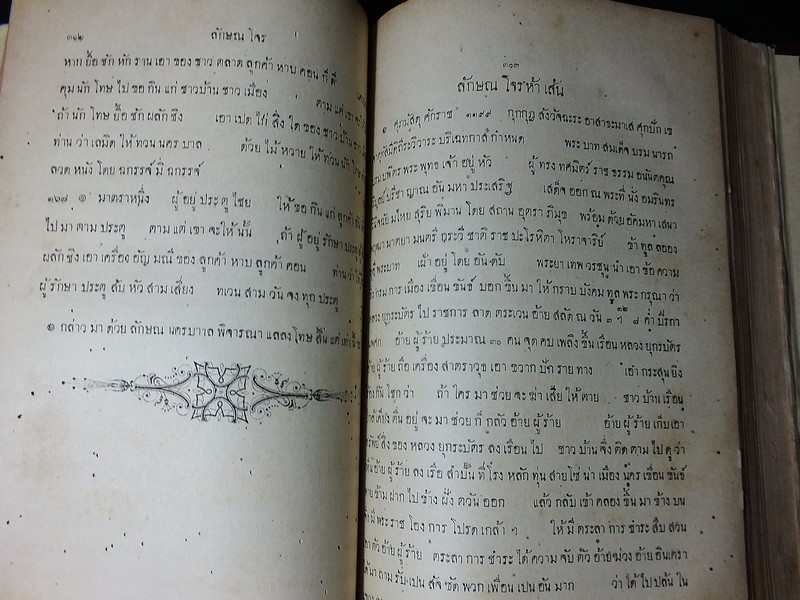 ๓๑๒ ลักษณ โจร
หาก ยื้อ ชัก หัก ราน เอา ของ ชาว ตลาด ลูกค้า หาบ คอน ก็ ดี
คุม นัก โทษ ไป ขอ กิน แก่ ชาวบ้าน ชาว เมือง ตาม แต่ เขา
ถ้า นัก โทษ ยื้อ ชัก ผลัก ชิง เอา เป็ด ไก่ สิ่ง ใด ของ ชาว บ้าน
ท่าน ว่า เลมิด ให้ ทวน นคร บาล ด้วย ไม้ หวาย ให้ ทวน นัก โทษ
ลวด หนัง โดย ฉกรรจ์ มิ ฉกรรจ์
๑๖๗ ๏ มาตราหนึ่ง ผู้ อยู่ ประตู ไชย ให้ ขอ กิน แก่ ลูกค้า
ไป มา ตาม ประตู ตาม แต่ เขา จะให้ นั้น ถ้า ผู้ อยู่ รักษา ประตู
ผลัก ชิง เอา เครื่อง อัญ มณี ของ ลูกค้า หาบ ลูกค้า คอน ท่าน ว่า
ผู้ รักษา ประตู สับ หัว สาม เสี่ยง ทเวน สาม วัน จง ทุก ประตู
๏ กล่าว มา ด้วย ลักษณ นครบาล พิจารณา แลลง โทษ สิ้น แต่ เท่า นี้
๓๑๓
ลักษณ โจร ห้า เส้น
๏ ศุภมัสดุ ศักราช ๑๑๙๙ กุกกุฏ สังวัจฉะระ อาสาธะมาเส ศุกปักเข
บริเฉทกาล กำหนด พระ บาท สมเด็จ บรม นารถ
บพิตร พระ พุทธ เจ้า อยู่ หัว ผู้ ทรง ทศมิตร์ ราช ธรรม อนันตคุณ
ปรีชา ญาณ อัน มหา ประเสริฐ เสด็จ ออก ณ พระที่ นั่ง อมรินทร
มไหย สุริย พิมาน โดย สถาน อุตรา ภิมุข พร้อม ด้วย อัคมหา เสนา
มาตยา มนตรี วุระวี ชาติ ราช ปะโรหิตา โหราจาริย์ ข้า ทูล ลออง
พระบาท เฝ้า อยู่ โดย อัน ดับ พระยา เทพ วรชุน นำ เอา ข้อ ความ
กรม การ เมือง เขื่อน ขันธ์ บอก ขึ้น มา ให้ กราบ บังคม ทูล พระ กรุณา ว่า
หลวง ยุกระบัตร ไป ราชการ ลาด ตระเวน อ้าย สลัด ณ วัน ค่ำ ปีรกา
อ้าย ผู้ ร้าย ประมาณ ๓๐ คน จุด คบ เพลิง ขึ้น เรือน หลวง ยุกรบัตร
อ้าย ผู้ ร้าย ถือ เครื่อง สาตราวุธ เอา ขวาก ปัก ราย ทาง เอา กระสุน ยิง
ร้อง กัน โชก ว่า ถ้า ใคร มา ช่วย จะ ฆ่า เสีย ให้ ตาย ชาว บ้าน เรือน
ใกล้ เคียง ตื่น อยู่ จะ มา ช่วย ก็ กลัว อ้าย ผู้ ร้าย อ้าย ผู้ ร้าย เก็บ เอา
ทรัพย์ สิ่ง ของ หลวง ยุกระบัตร ลง เรือน ไป ชาว บ้าน จึ่ง ติด ตาม ไป ดู ว่า
เห็น อ้าย ผู้ ร้าย ลง เรือ สำปั้น ที่ โรง หลัก ทุ่น สายโซ่ น่า เมือง นคร เขื่อน ขันธ์
พาย ข้าม ฝาก ไป ข้าง ฝั่ง ตวัน ออก แล้ว กลับ เข้า คลอง ขึ้น มา ข้าง บน
จึ่ง มี พระ ราช โอง การ โปรด เกล้า ฯ ให้ มี ตระลา การ ชำระ สืบ สวน
เอา ตัว อ้าย ผู้ ร้าย ตระลา การ ชำระ ได้ ความ จับ ตัว อ้าย ม่วง อ้าย อินเดรา
ได้ มา ถาม รับ เปน สัจ ซัด พวก เพื่อน เปน อัน มาก ว่า ได้ ไป ปล้น ใน